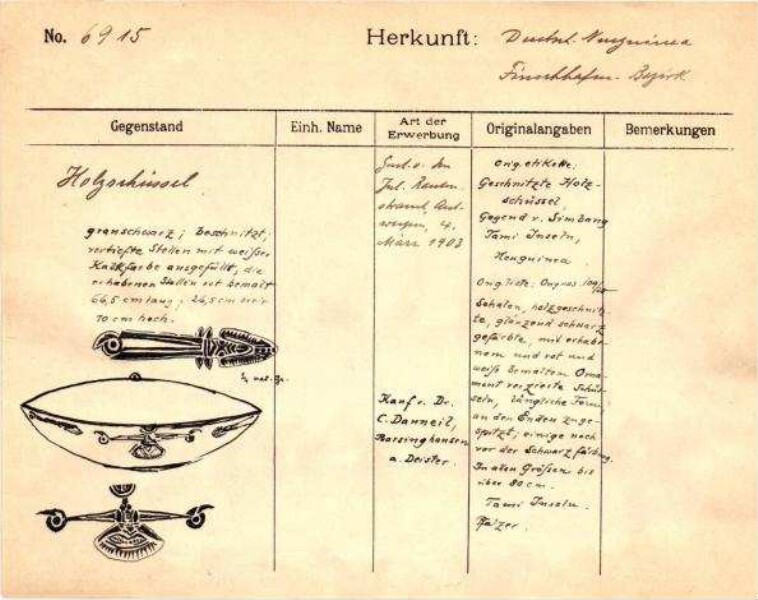 No. 6915
Herkunft: Deutsch. Neuguinea
Finschhafen-Bezirk
Gegenstand
Einh. Name
Art der
Erwerbung
Originalangaben
Bemerkungen
Holzschüssel
grauschwarz; beschnitzt;
vertiefte Stellen mit weißer
Kalkfarbe ausgefüllt, die
erhabenen Stellen rot bemalt
66,5 cm lang; 26,5 cm breit
10 cm hoch.
nat. Gr.
März 1903
Kauf v. Dr.
C. Danneil,
Barsinghausen
a. Deister.
Orig. etikette:
Geschnitzte Holz-
schüssel,
Gegend v. Simbang
Tami Inseln,
Neuguinea.
Orig liste:
Schalen, holzgeschnitz-
te, glänzend schwarz
gefärbte, mit erhabe-
nem und rot und
weiß bemalten Orna-
ment verzierte Schüs-
seln, längliche Form
an den Enden zuge-
spitzt; einige noch
vor der Schwarzfärbung.
In allen Größen bis
über 80 cm.
Tami Inseln.